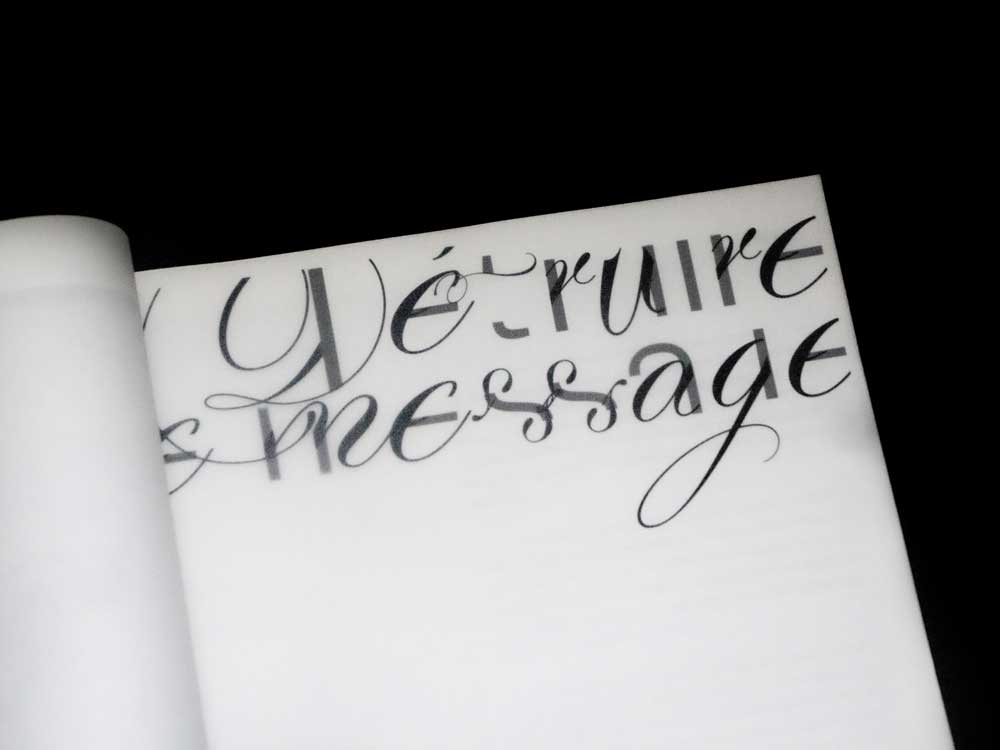 Détruire
message